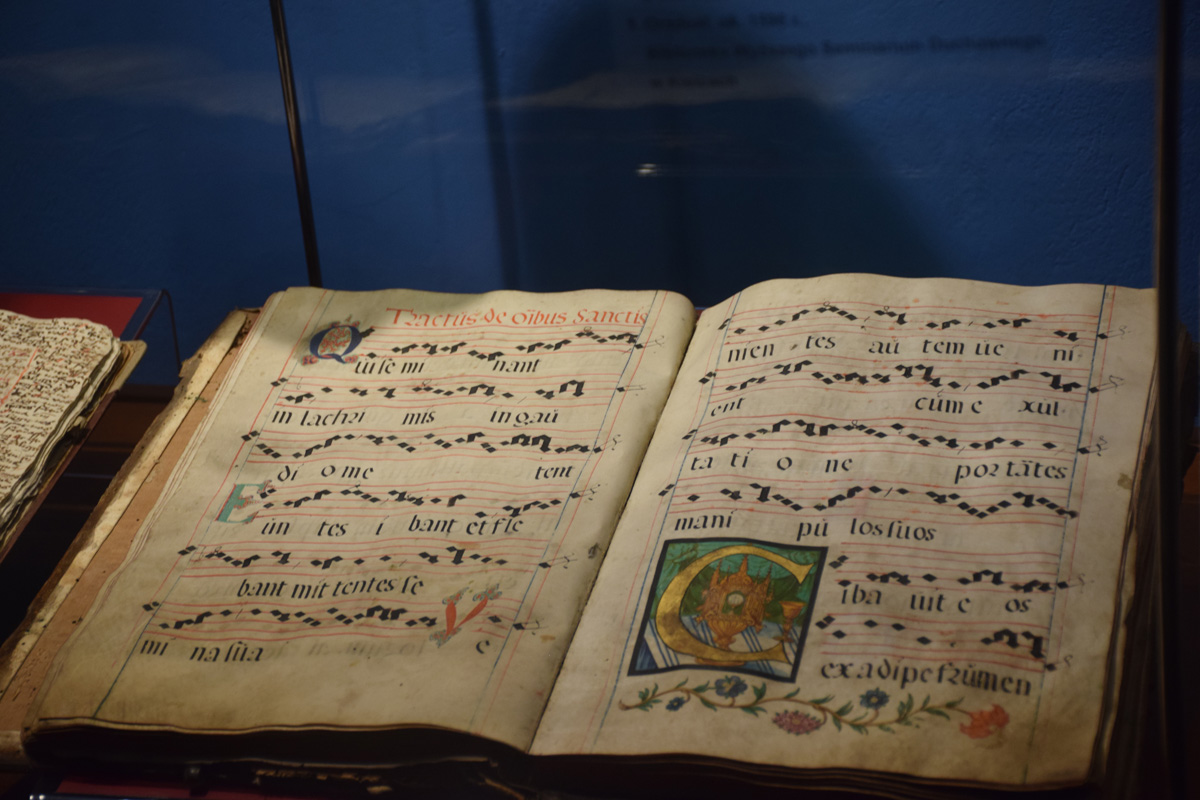 Tractũs·de Oĩbus Sanctis
Qui ſe mi nant
in lachri mis in gaũ
di o me tent
Eũn tes i bant et fle
bant mit tentes ſe
mi na ſũa V e
nien tes aũ tem ũe ni-
ent cũm e xul-
ta ti o ne portãtes
mani pũ los ſũos
Ciba ũit e os
ex adipe frũmen